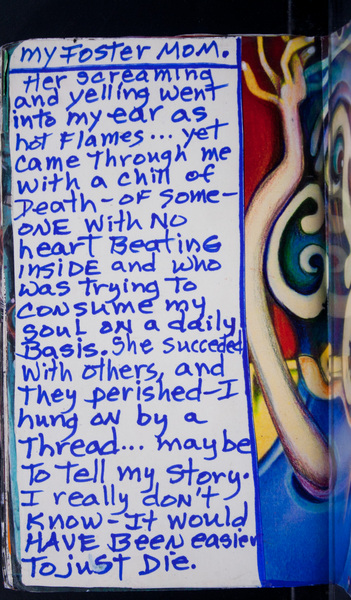 my Foster Mom.
Her screaming
and yelling went
into my ear as
hot Flames... yet
came through me
with a chill of
Death-of some-
ONE With NO
heart Beating
INSIDE and who
was trying to
consume my
soul on a daily
Basis. She succeded
with others, and
They perished-I
hung on by a
Thread... maybe
To Tell my Story.
I really don't
Know-It would
HAVE BEEN easier
To just Die.